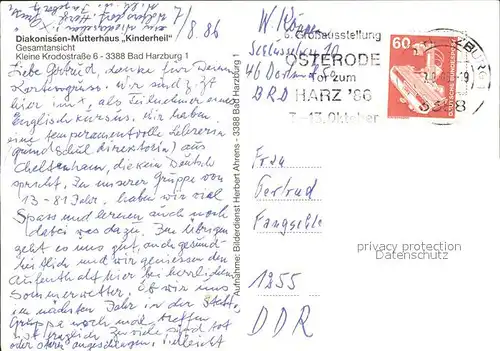 7/8.86
Diakonissen-Mutterhaus „Kinderheil"
Gesamtansicht
Kleine Krodostraße 6 - 3388 Bad Harzburg 1
Liebe Gertrud, danke für Deinen
Kartengruss. Wir sind z. Zt
hier im als Teilnehmer eines
Englischkurses. Wir haben
eine temperamentvolle Lehrerin
(Grundschuldirektorin) aus
Cheltenham, die kein Deutsch
spricht. In unserer Gruppe von
13 - 81 Jahr. haben wir viel
Spass und lernen auch noch
dabei was dazu. Im übrigen
geht es uns gut, auch gesund-
heitlich und wir geniessen den
Aufenthalt hier bei herrlichem
Sommerwetter. Ob wir uns
im nächsten Jahr in der
Gruppe noch mal treffen
ist fraglich. Zu viele sind tot
oder vielleicht
Aufnahme: Bilderdienst Herbert Ahrens - 3388 Bad Harzburg 1
W
10
46 Dortmund
BRD
6. Großausstellung
OSTERODE
Tor zum
HARZ '86
7.-13. Oktober
3388
60
DEUTSCHE BUNDESPOST
Frau
Gertrud
Fangohle
1255
DDR
privacy protection
Datenschutz